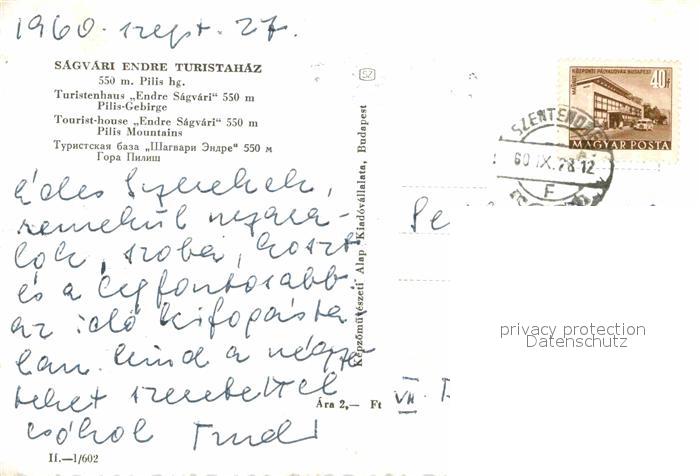 1960. szept. 27.
SÁGVÁRI ENDRE TURISTAHÁZ
550 m. Pilis hg.
Turistenhaus „Endre Ságvári" 550 m
Pilis-Gebirge
Tourist-house „Endre Ságvári" 550 m
Pilis Mountains
Туристская база „Шагвари Эндре" 550 м
Гора Пилиш
Édes Szüleim,
remekül nyara-
lok, szoba, koszt
és a legfontosabb
az idő kifogásta-
lan. Mind a négy
szeretettel
csókol Trudi
Ára 2,— Ft
II.—1/602
Képzőművészeti Alap Kiadóvállalata, Budapest
SZ
MÁVAUT KÖZPONTI PÁLYAUDVAR BUDAPEST
40f
MAGYAR POSTA
SZENTENDRE
60 IX. 28 12
F
VII.
privacy protection
Datenschutz